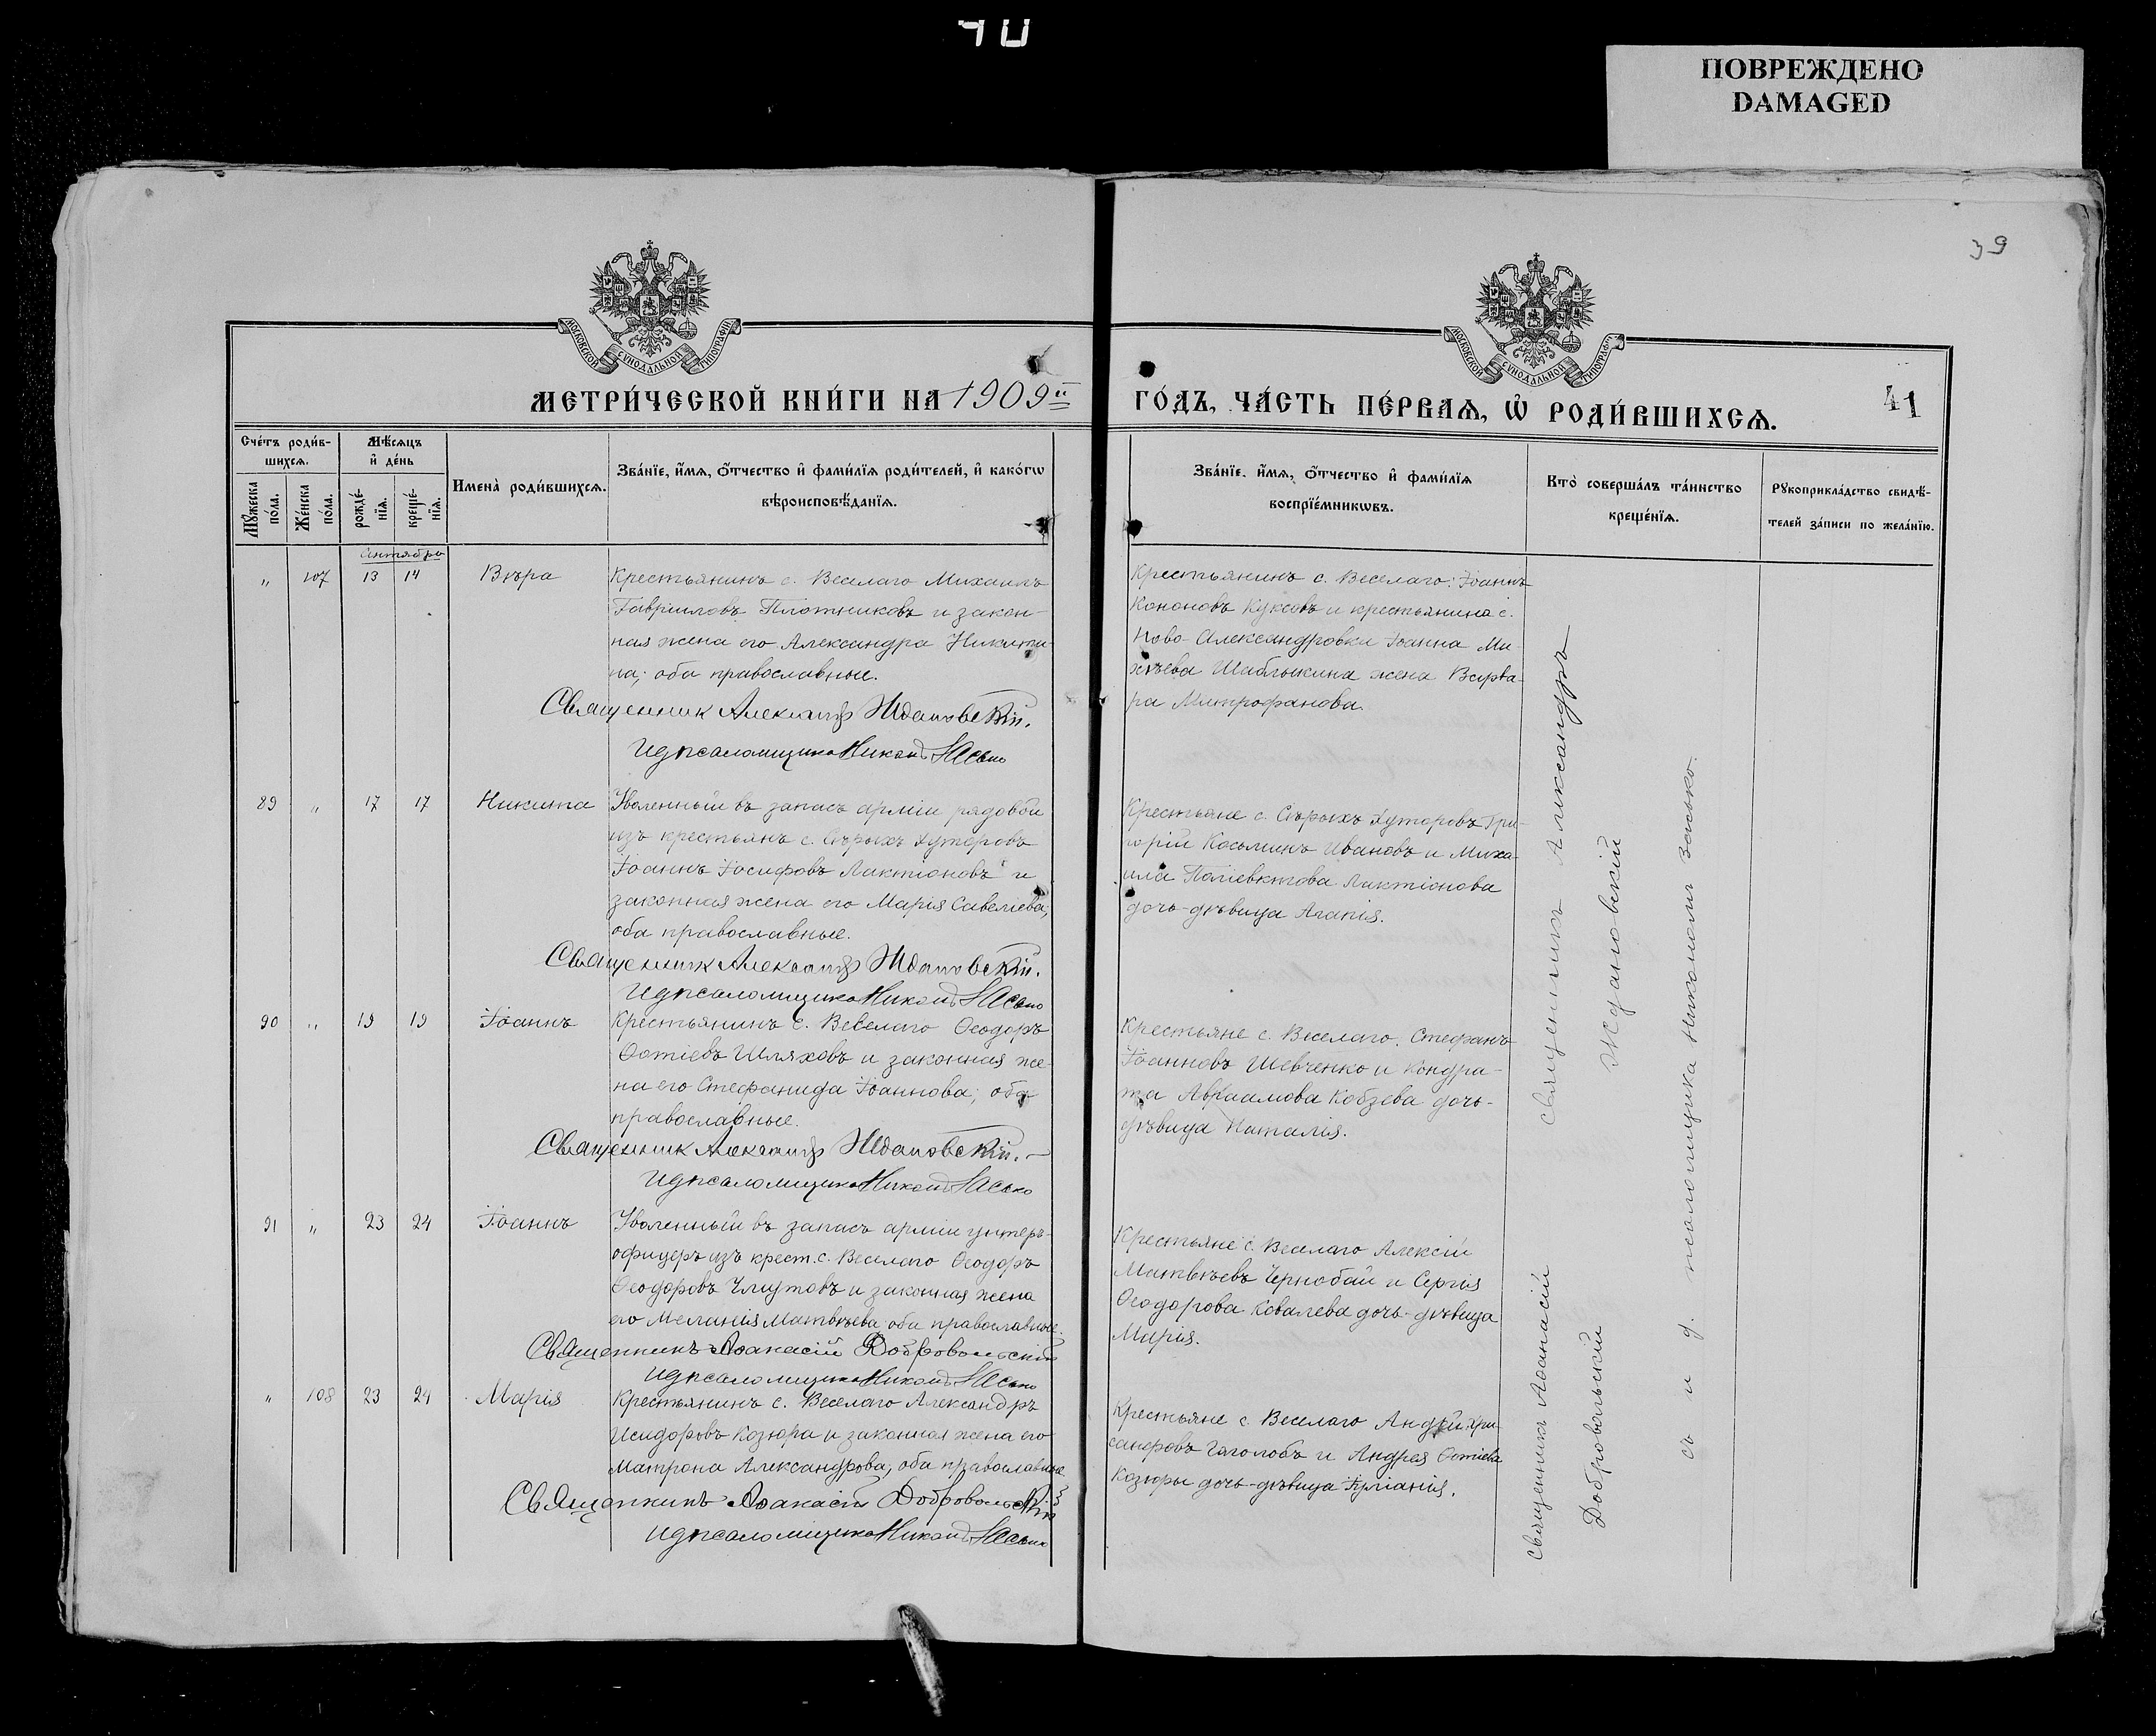 40
ПОВРЕЖДЕНО
DAMAGED
39
МОСКОВСКОЙ СѴНОДАЛЬНОЙ ТИПОГРАФІИ
МОСКОВСКОЙ СѴНОДАЛЬНОЙ ТИПОГРАФІИ
МЕТРИ́ЧЕСКОЙ КНИ́ГИ НА 1909й
ГО́ДЪ, ЧА́СТЬ ПЕ́РВАѦ, Ѡ҆ РОДИ́ВШИХСѦ.
41
Сче́тъ роди́в-
шихсѧ.
Мѣ́сѧцъ
и҆ де́нь
Мꙋ́жеска
по́ла.
Же́нска
по́ла.
рожде́-
нїѧ.
креще́-
нїѧ.
Имена̀ роди́вшихсѧ.
Зва́нїе, и҆́мѧ, ѻ҆́тчество и҆ фами́лїѧ роди́телей, и҆ како́гѡ
вѣроисповѣ́данїѧ.
Зва́нїе. и҆́мѧ, ѻ҆́тчество и҆ фами́лїѧ
воспрїе́мникѡвъ.
Кто̀ соверша́лъ та́инство
креще́нїѧ.
Рꙋкоприкла́дство свидѣ́-
телей за́писи по жела́нїю.
Сентябрь
" 107 13 14 Вѣра
Крестьянинъ с. Веселаго Михаилъ
Гавриловъ Плотниковъ и закон-
ная жена его Александра Никити-
на; оба православные.
Священник Александр Ждановский.
И д псаломщика Никон Засько
Крестьянинъ с. Веселаго: Іоаннъ
Кононовъ Куксовъ и крестьянина с.
Ново-Александровки Іоанна Ми-
хѣева Шаблыкина жена Варва-
ра Митрофанова.
89 " 17 17 Никита
Уволенный въ запасъ арміи рядовой
изъ крестьянъ с. Сѣрыхъ Хуторовъ
Іоаннъ Іосифовъ Лактіоновъ и
законная жена его Марія Савеліева;
оба православные.
Священник Александр Ждановский.
И д псаломщика Никон Засько
Крестьяне с. Сѣрыхъ Хуторовъ Гри-
горій Косьминъ Ивановъ и Миха-
ила Поліевктова Лактіонова
дочь-дѣвица Агапія.
90 " 19 19 Іоаннъ
Крестьянинъ с. Веселаго Ѳеодоръ
Фотіевъ Шляховъ и законная же-
на его Стефанида Іоаннова; оба
православные.
Священник Александр Ждановский.
И д псаломщика Никон Засько
Крестьяне с. Веселаго. Стефанъ
Іоанновъ Шевченко и Кондра-
та Авраамова Кобзева дочь-
дѣвица Наталія.
91 " 23 24 Іоаннъ
Уволенный въ запасъ арміи унтеръ-
офицеръ изъ крест. с. Веселаго Ѳеодоръ
Ѳеодоровъ и законная жена
его Меланія Матвѣева оба православные.
Священникъ Аѳанасій Добровольскій
И д псаломщика Никон Засько
Крестьяне с. Веселаго Алексій
Матвѣевъ Чернобай и Сергія
Ѳеодорова Ковалева дочь-дѣвица
Марія.
" 108 23 24 Марія
Крестьянинъ с. Веселаго Александръ
Исидоровъ Козюра и законная жена его
Матрона Александрова; оба православные
Священникъ Аѳанасій Добровольскій
И д псаломщика Никон Засько
Крестьяне с. Веселаго Андрей Хри-
санфовъ и Андрея Фотіева
Козюры дочь-дѣвица Іуліанія.
Священникъ Александръ
Ждановскій
Священникъ Аѳанасій
Добровольскій
съ и д. псаломщика Никономъ Засько.